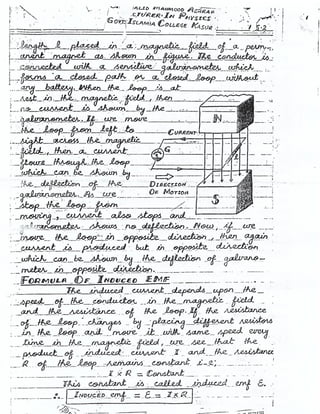 KHALID MAHMOOD ASHRAF
LECTURER IN PHYSICS
GOVT. ISLAMIA COLLEGE KASUR
15.2
length l placed in a magnetic field of a perm-
anent magnet as shown in figure. The conductor is
connected with a sensitive galvanometer which
forms a closed path or a closed loop without
any battery. When the loop is at
rest in the magnetic field, then
no current is shown by the
galvanometer. If we move
the loop from left to
right across the magnetic
field, then a current
flows through the loop
which can be shown by
the deflection of the
galvanometer. As we
stop the loop from
moving, current also stops and
galvanometer shows no deflection. Now, if we
move the loop in opposite direction, then again
current is produced but in opposite direction
which can be shown by the deflection of galvano-
meter in opposite direction.
N
CURRENT
G
DIRECTION
OF MOTION
S
FORMULA OF INDUCED EMF
The induced current depends upon the
speed of the conductor in the magnetic field
and the resistance of the loop. If the resistance
of the loop changes by placing different resistors
in the loop and move it with same speed every
time in the magnetic field, we see that the
product of induced current I and the resistance
R of the loop remains constant i-e;
I x R = Constant
This constant is called induced emf ε.
∴ INDUCED emf = ε = I x R